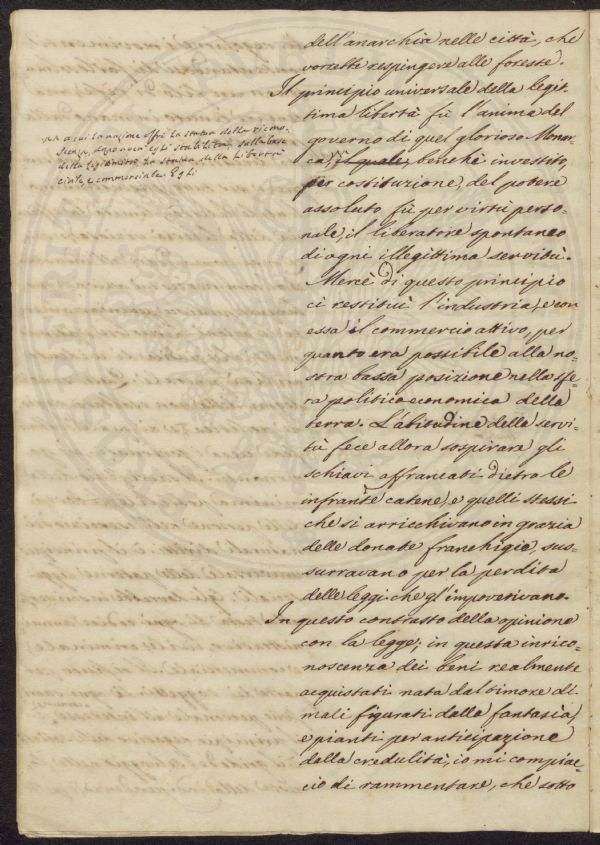 dell'anarchia nelle città, che
vorrebbe respingere alle foreste.
Il principio universale della legit-
tima libertà fù l'anima del
governo di quel glorioso Monar-
ca, il quale, benchè investito,
per costituzione, del potere
assoluto fù per virtù perso-
nale, il liberatore spontaneo
di ogni illegittima servitù.
Mercè di questo principio
ci restituì l'industria, e con
essa il commercio attivo, per
quanto era possibile alla no-
stra bassa posizione nella sfe-
ra politico economica della
terra. L'abitudine della servi-
tù fece allora sospirare gli
schiavi affrancati dietro le
infrante catene, e quelli stessi
che si arricchivano in grazia
delle donate franchigie, sus-
surravano per la perdita
delle leggi che gl'impoverivano.
In questo contrasto della opinione
con la legge; in questa inrico-
noscenza dei beni realmente
acquistati nata dal timore di
mali figurati dalla fantasia,
e pianti per anticipazione
dalla credulità, io mi compiac-
cio di rammentare, che sotto
a cui la nazione offrì la statua della ricono-
scenza, dopo che egli stabilita, sulla base
della legislazione, la statua della libertà
civile e commerciale. Egli